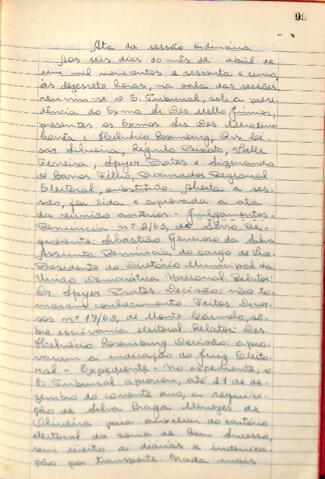 98
Ata da sessão ordinária
Aos seis dias do mês de abril de
um mil novecentos e sessenta e cinco,
às dezessete horas, na sala das sessões,
reuniu-se o E. Tribunal, sob a presi-
dência do Exmo Sr Des Mello Júnior,
presentes os Exmos Srs Des
Corrêa e Helvécio Rosenburg, Drs Cé-
sar Silveira, Régulo Peixoto, Valle
Ferreira, Spyer Prates e Sizenando
de Barros Filho, Procurador Regional
Eleitoral, substituto. Aberta a ses-
são, foi lida e aprovada a ata
da reunião anterior - Julgamentos.
Renúncia nº 2/63, do Serro. Re-
querente: Sebastião Generoso da Silva
Assunto: Renúncia do cargo de Vice
Presidente do Diretório Municipal da
União Democrática Nacional. Relator:
Dr. Spyer Prates. Decisão: não to-
maram conhecimento. Feitos Diver-
sos nº 17/63, de Monte Carmelo, sô-
bre escrivania eleitoral. Relator: Des.
Helvécio Rosenburg. Decisão: apro-
varam a indicação do Juiz Eleito-
ral - Expediente - No expediente, o
E. Tribunal aprovou, até 31 de de-
zembro do corrente ano, a requisi-
ção de Silva Braga Menezes de
Oliveira para auxiliar do cartório
eleitoral da zona de Bom Sucesso,
sem direito a diárias e indeniza-
ção por transporte. Nada mais